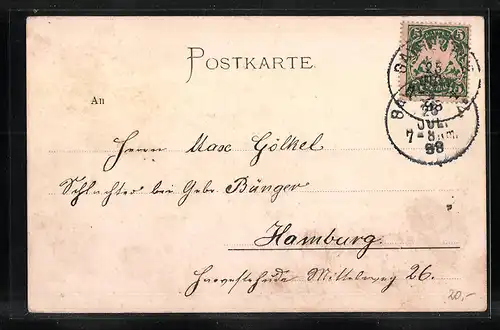 POSTKARTE.
5 5
25
JUL.
7-8 Nm.
98
An
Herrn Max Gölkel
Schlachter bei Gebr. Bünger
Hamburg.
Harvestehude Mittelweg 26.
20,-